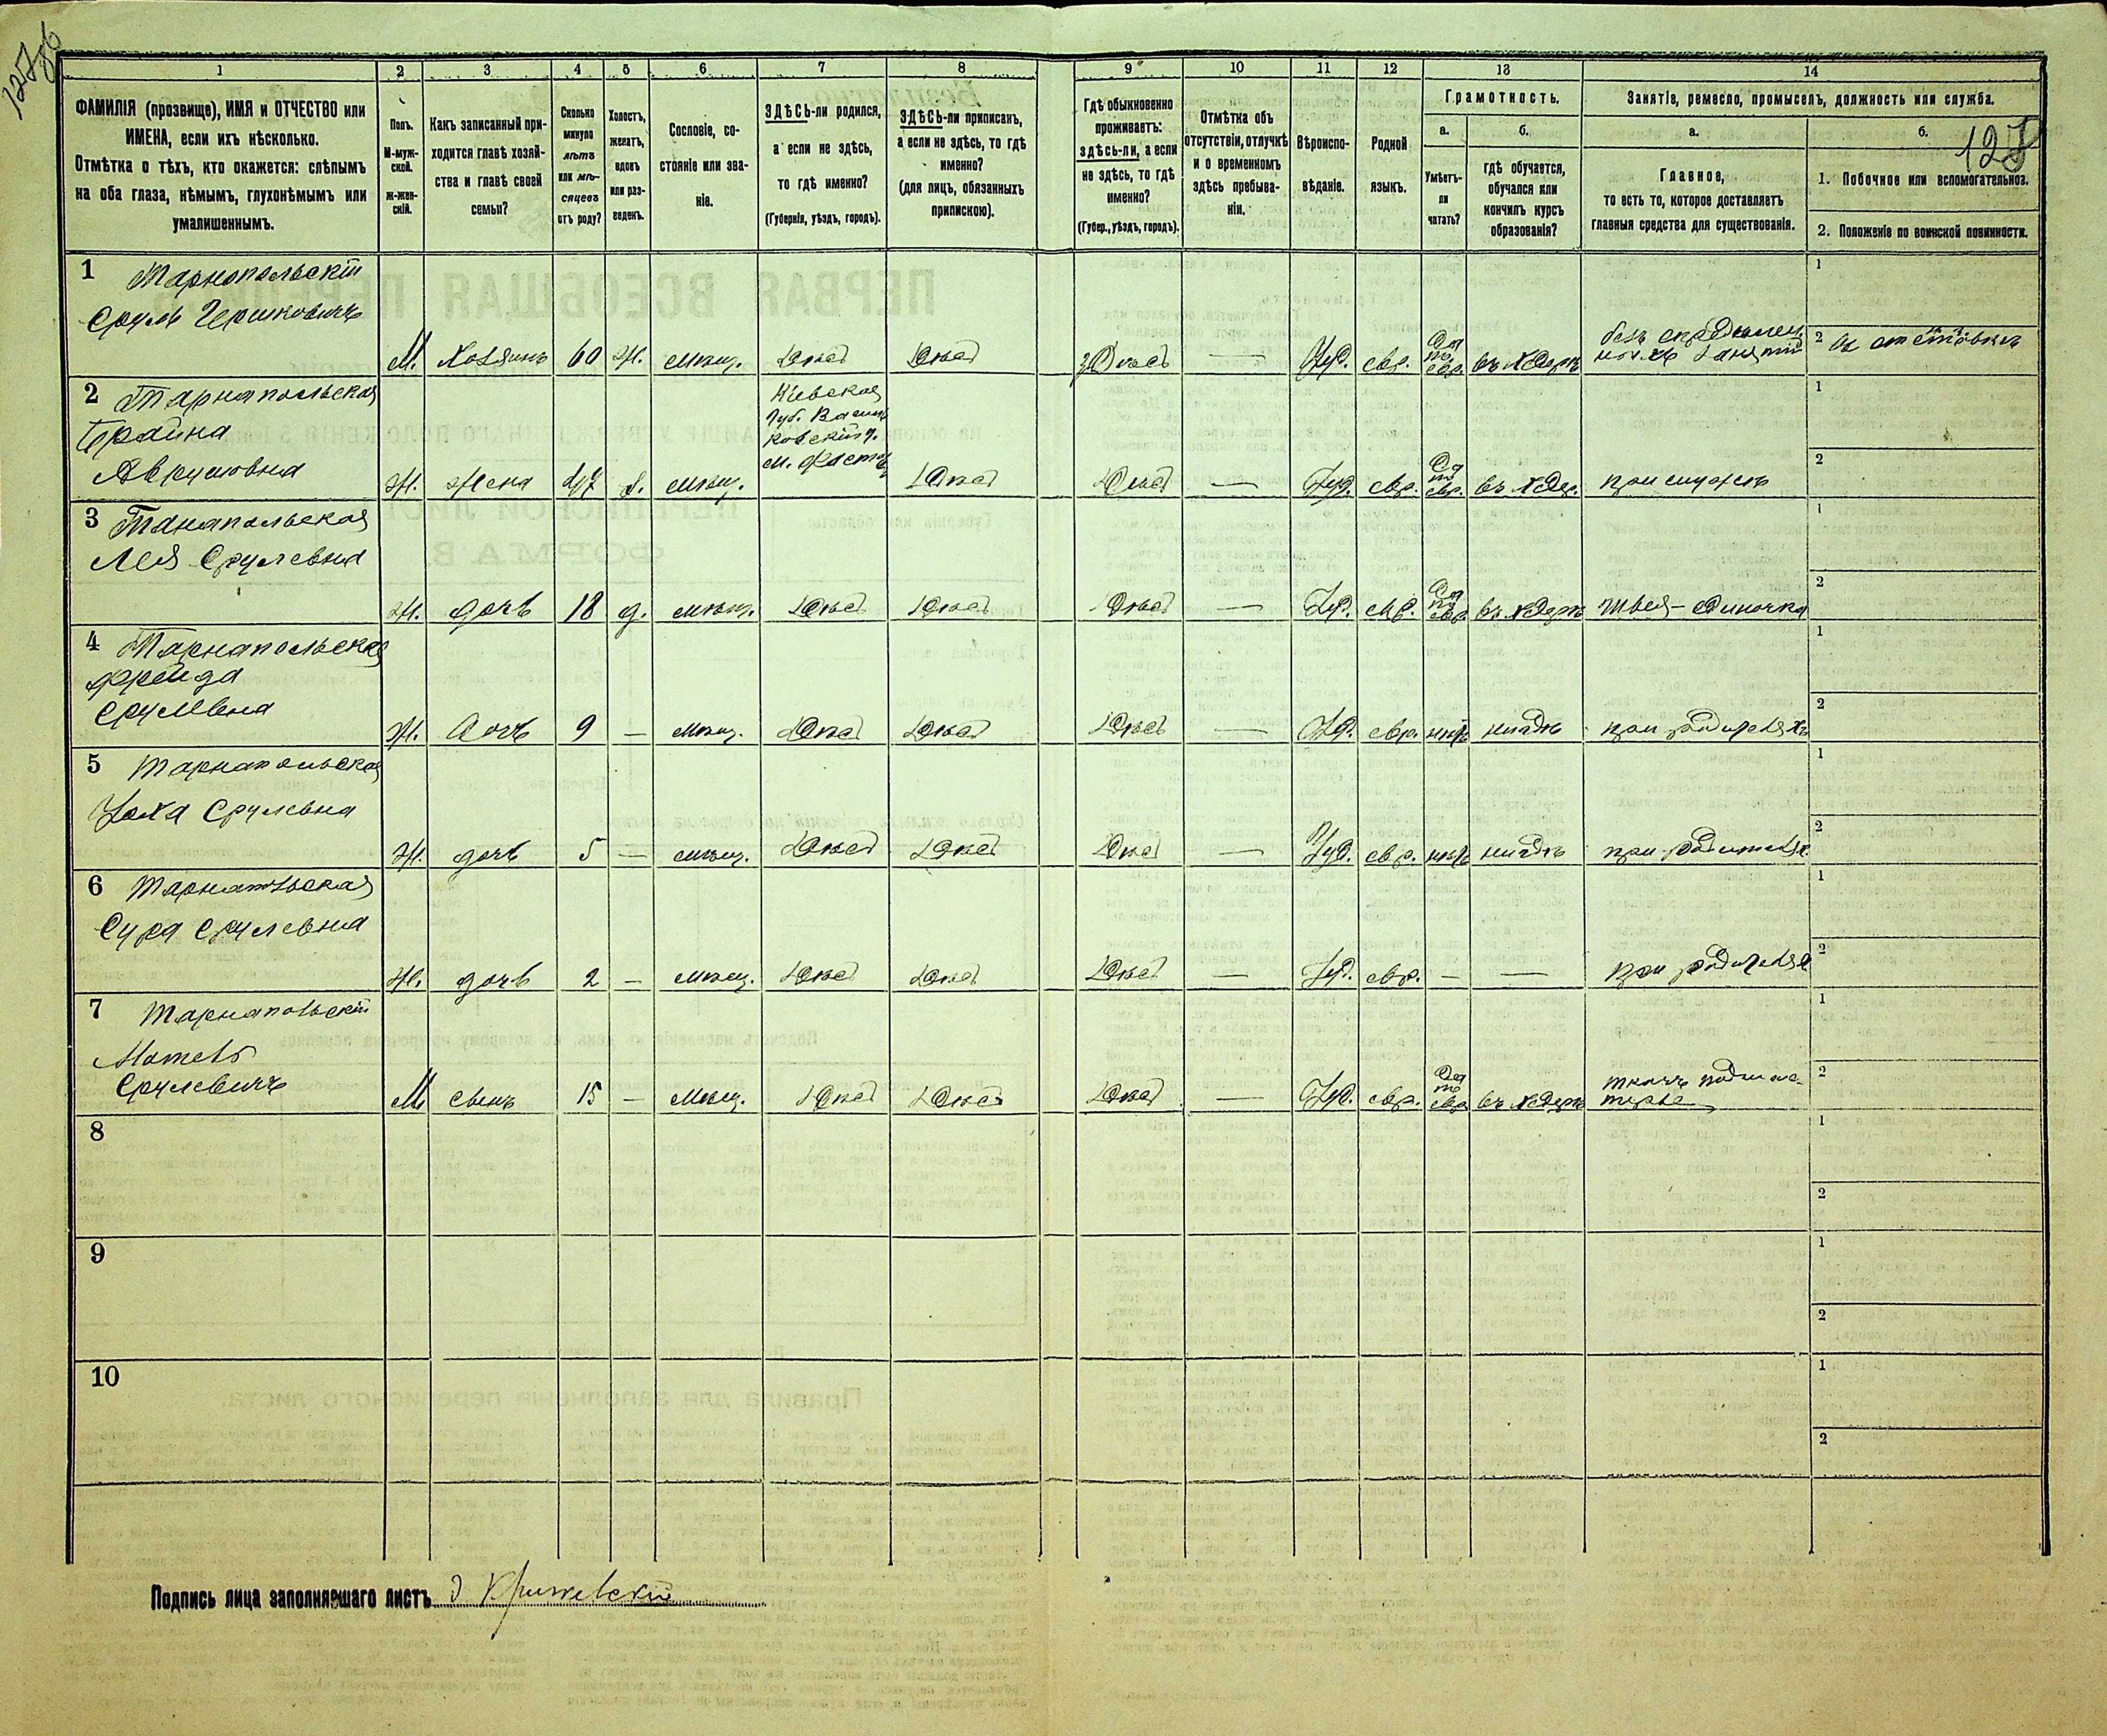 127об
127
1 2 3 4 5 6 7 8 9 10 11 12 13 14
ФАМИЛІЯ (прозвище), ИМЯ и ОТЧЕСТВО или
ИМЕНА, если ихъ нѣсколько.
Отмѣтка о тѣхъ, кто окажется: слѣпымъ
на оба глаза, нѣмымъ, глухонѣмымъ или
умалишеннымъ.
Полъ.
М-муж-
ской.
ж-жен-
скій.
Какъ записанный при-
ходится главѣ хозяй-
ства и главѣ своей
семьи?
Сколько
минуло
лѣтъ
или мѣ-
сяцевъ
отъ роду?
Холостъ,
женатъ,
вдовъ
или раз-
веденъ.
Сословіе, со-
стояніе или зва-
ніе.
ЗДѢСЬ-ли родился,
а если не здѣсь,
то гдѣ именно?
(Губернія, уѣздъ, городъ).
ЗДѢСЬ-ли приписанъ,
а если не здѣсь, то гдѣ
именно?
(для лицъ, обязанныхъ
припискою).
Гдѣ обыкновенно
проживаетъ:
здѣсь-ли, а если
не здѣсь, то гдѣ
именно?
(Губер., уѣздъ, городъ).
Отмѣтка объ
отсутствіи, отлучкѣ
и о временномъ
здѣсь пребыва-
ніи.
Вѣроиспо-
вѣданіе.
Родной
языкъ.
Грамотность.
а.
Умѣетъ-
ли
читать?
б.
гдѣ обучается,
обучался или
кончилъ курсъ
образованія?
Занятіе, ремесло, промыселъ, должность или служба.
а.
Главное,
то есть то, которое доставляетъ
главныя средства для существованія.
б.
1. Побочное или вспомогательное.
2. Положеніе по воинской повинности.
1 Тарнопольскій
Сруль Гершковичъ
М. Хозяинъ 60 ж. мѣщ. здѣсь здѣсь здѣсь — Іуд. евр. Да по евр. въ хедерѣ
безъ опредѣлен.
ныхъ занятій
1
2 въ отставкѣ
2 Тарнапольская
Брайна
Аврумовна
Ж. жена 47 з. мѣщ.
Кіевская
Губ. Василь
ковскій у.
м. Фастов
здѣсь здѣсь — Іуд. евр. Да по евр. въ хедер. при мужѣ
1
2
3 Танапольская
Лея Срулевна
Ж. дочь 18 д. мѣщ. здѣсь здѣсь здѣсь — Іуд. евр. Да по евр. въ хедерѣ швея-одиночка
1
2
4 Тарнапольская
Фрейда
Срулевна
Ж. дочь 9 — мѣщ. здѣсь здѣсь здѣсь — Іуд. евр. нѣтъ нигдѣ при родителяхъ
1
2
5 Тарнапольская
Хая Срулевна
Ж. дочь 5 — мѣщ. здѣсь здѣсь здѣсь — Іуд. евр. нѣтъ нигдѣ при родителях
1
2
6 Тарнапольская
Сура Срулевна
Ж. дочь 2 — мѣщ. здѣсь здѣсь здѣсь — Іуд. евр. — — при родителях
1
2
7 Тарнапольскій
Мотель
Срулевичъ
М. сынъ 15 — мѣщ. здѣсь здѣсь здѣсь — Іуд. евр. Да по евр. въ хедерѣ
ткачъ подмас-
терье
1
2
8
1
2
9
1
2
10
1
2
Подпись лица заполнявшаго листъ Крижевскій